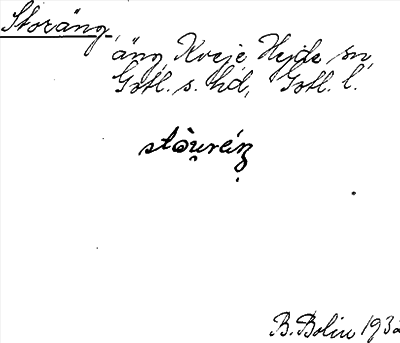 Storäng,
äng, Kveje Hejde sn,
Gotl. s. hd, Gotl. l.
stòu̯réiŋ
B. Bolin 1932